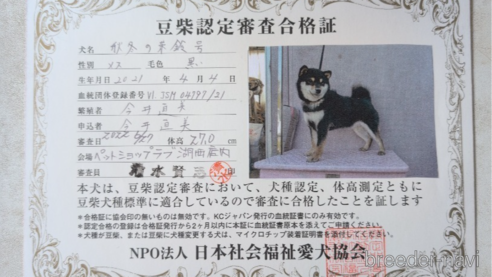 豆柴認定審査合格証
犬名 秋冬の茉鈴号
性別 メス 毛色 黒い
生年月日 2021年 4月4日
血統団体登録番号 VI JSM 04797/21
繁殖者 今井直美
申込者 今井直美
審査日 2022 6/27 体高 27.0 cm
会場 ペットショップラブ湖西店内
本犬は、豆柴認定審査において、犬種認定、体高測定ともに
豆柴犬種標準に適合しているので審査に合格したことを証します
*合格証に協会印の無いものは無効です。KCジャパン発行の血統証書にのみ有効です。
*認定合格の登録は合格証発行から2ヶ月以内に本証に血統証書原本を添えてご申請ください。
*犬種が豆柴、または豆柴に犬種変更する犬は、マイクロチップ装着証明書を添付してください。
NPO法人 日本社会福祉愛犬協会
breeder-navi